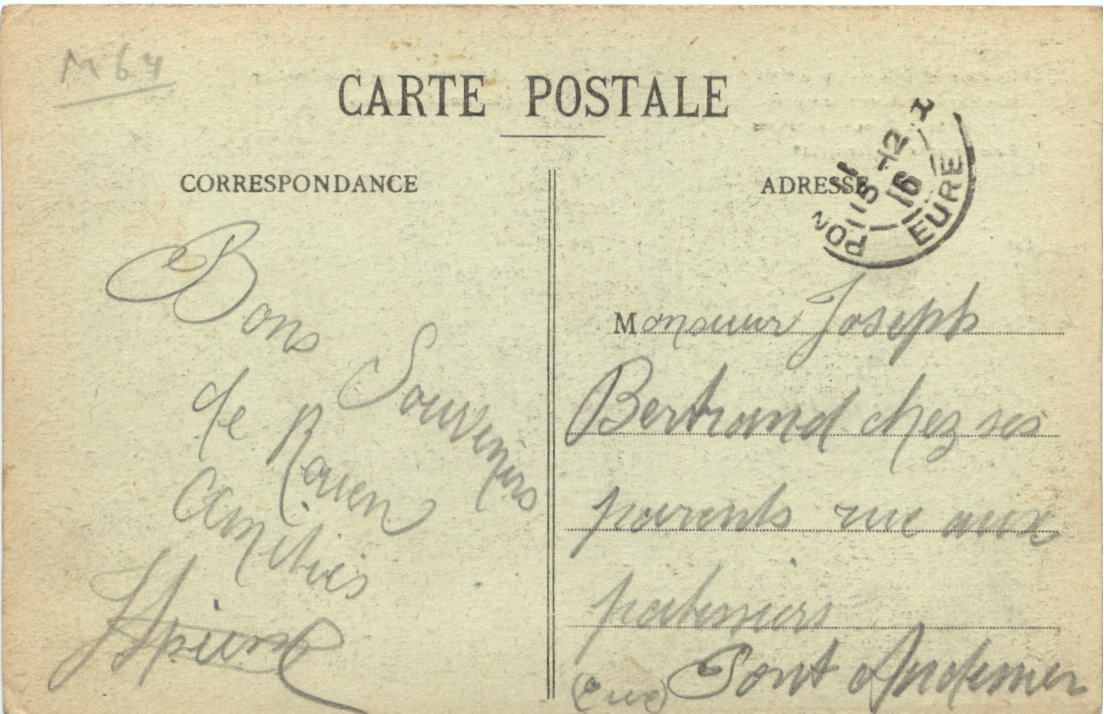 M64
CARTE POSTALE
CORRESPONDANCE
Bons
Souvenirs
de Rouen
amitiés
ADRESSE
PON
15 -12
16
EURE
Monsieur Joseph
Bertrand chez ses
parents rue aux
Pont Audemer